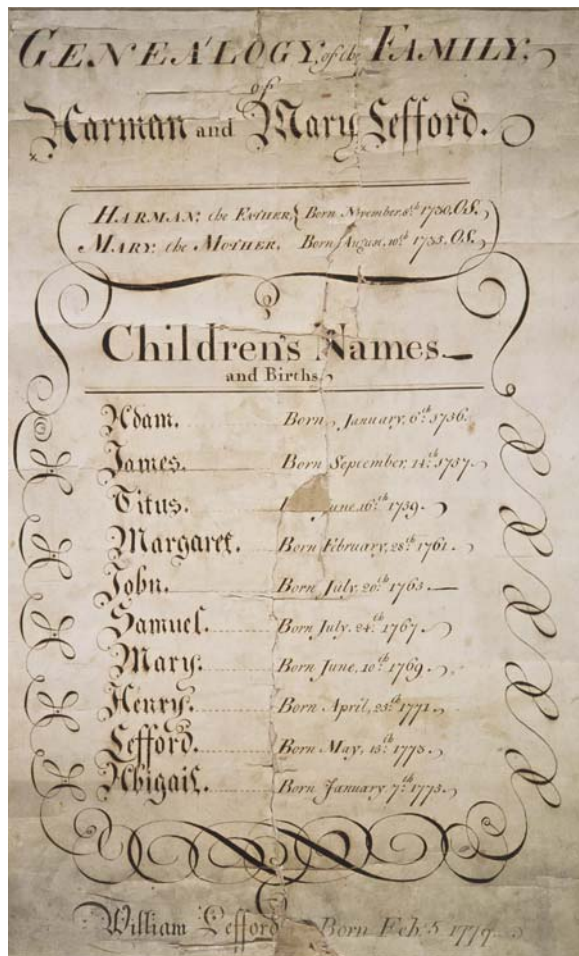 GENEALOGY, of the FAMILY,
of
Harman and Mary Lefford.
HARMAN: the FATHER, Born November, 8th 1730. O.S.
MARY: the MOTHER, Born August, 10th 1735. O.S.
Children's Names
and Births.
Adam. Born, January, 6th 1756.
James. Born September, 14th 1757.
Titus. June, 16th 1759.
Margaret. Born February, 28th 1761.
John. Born July, 20th 1763.
Samuel. Born July, 24th 1767.
Mary. Born June, 10th 1769.
Henry. Born April, 25th 1771.
Lefford. Born May, 15th 1773.
Abigail. Born January, 7th 1775.
William Lefford Born Feb. 5 1779.